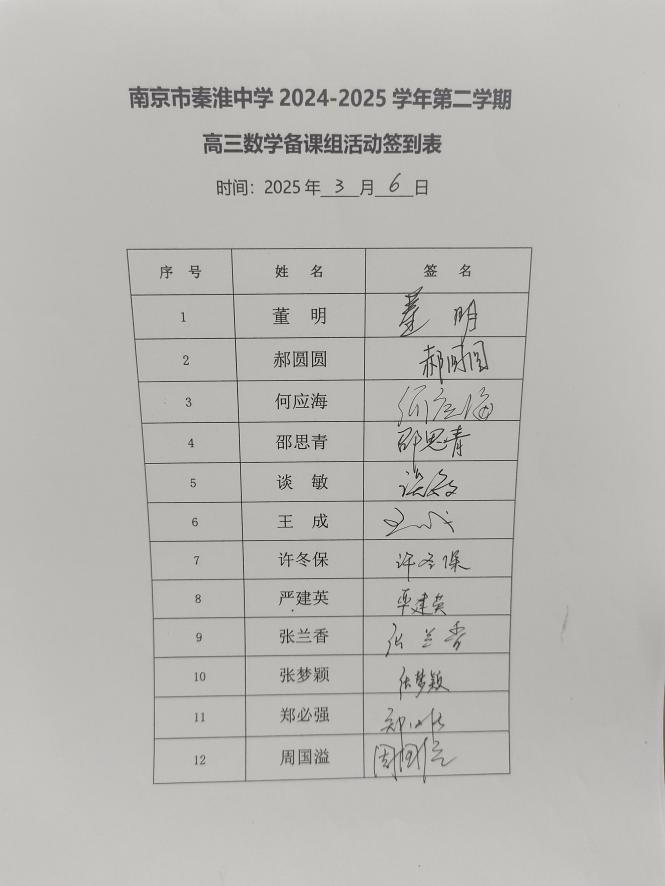 南京市秦淮中学 2024-2025 学年第二学期
高三数学备课组活动签到表
时间：2025 年 3 月 6 日
序 号 姓 名 签 名
1 董 明 董 明
2 郝圆圆 郝圆圆
3 何应海 何应海
4 邵思青 邵思青
5 谈 敏 谈敏
6 王 成 王成
7 许冬保 许冬保
8 严建英 严建英
9 张兰香 张兰香
10 张梦颖 张梦颖
11 郑必强 郑必强
12 周国溢 周国溢